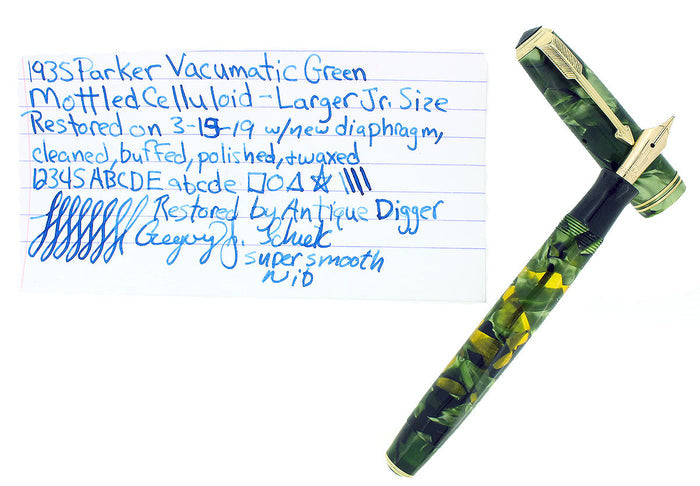 1935 Parker Vacumatic Green
Mottled Celluloid - Larger Jr. Size
Restored on 3-15-19 w/new diaphragm,
cleaned, buffed, polished, + waxed
12345 ABCDE abcde
Restored by Antique Digger
Gregory J.
super smooth
nib